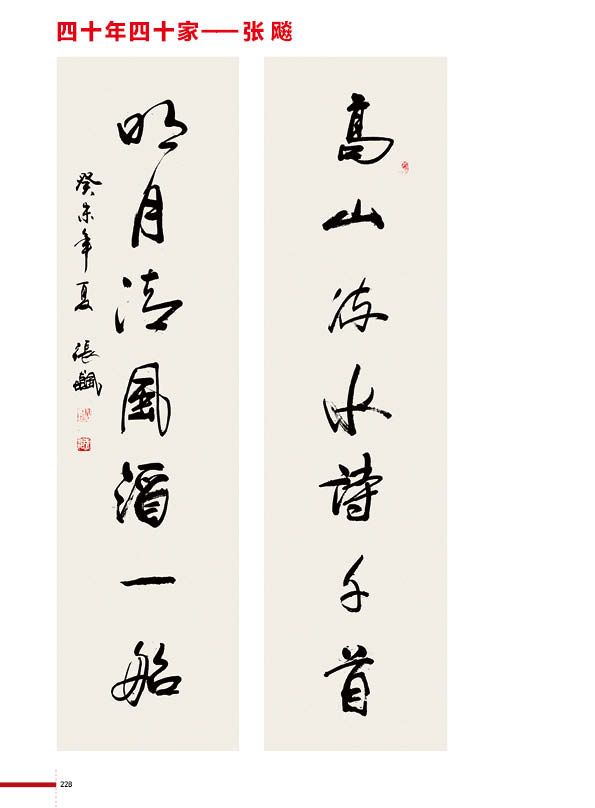 四十年四十家——张飚
高山流水詩千首
明月清風酒一船
癸未年夏 張飈
228